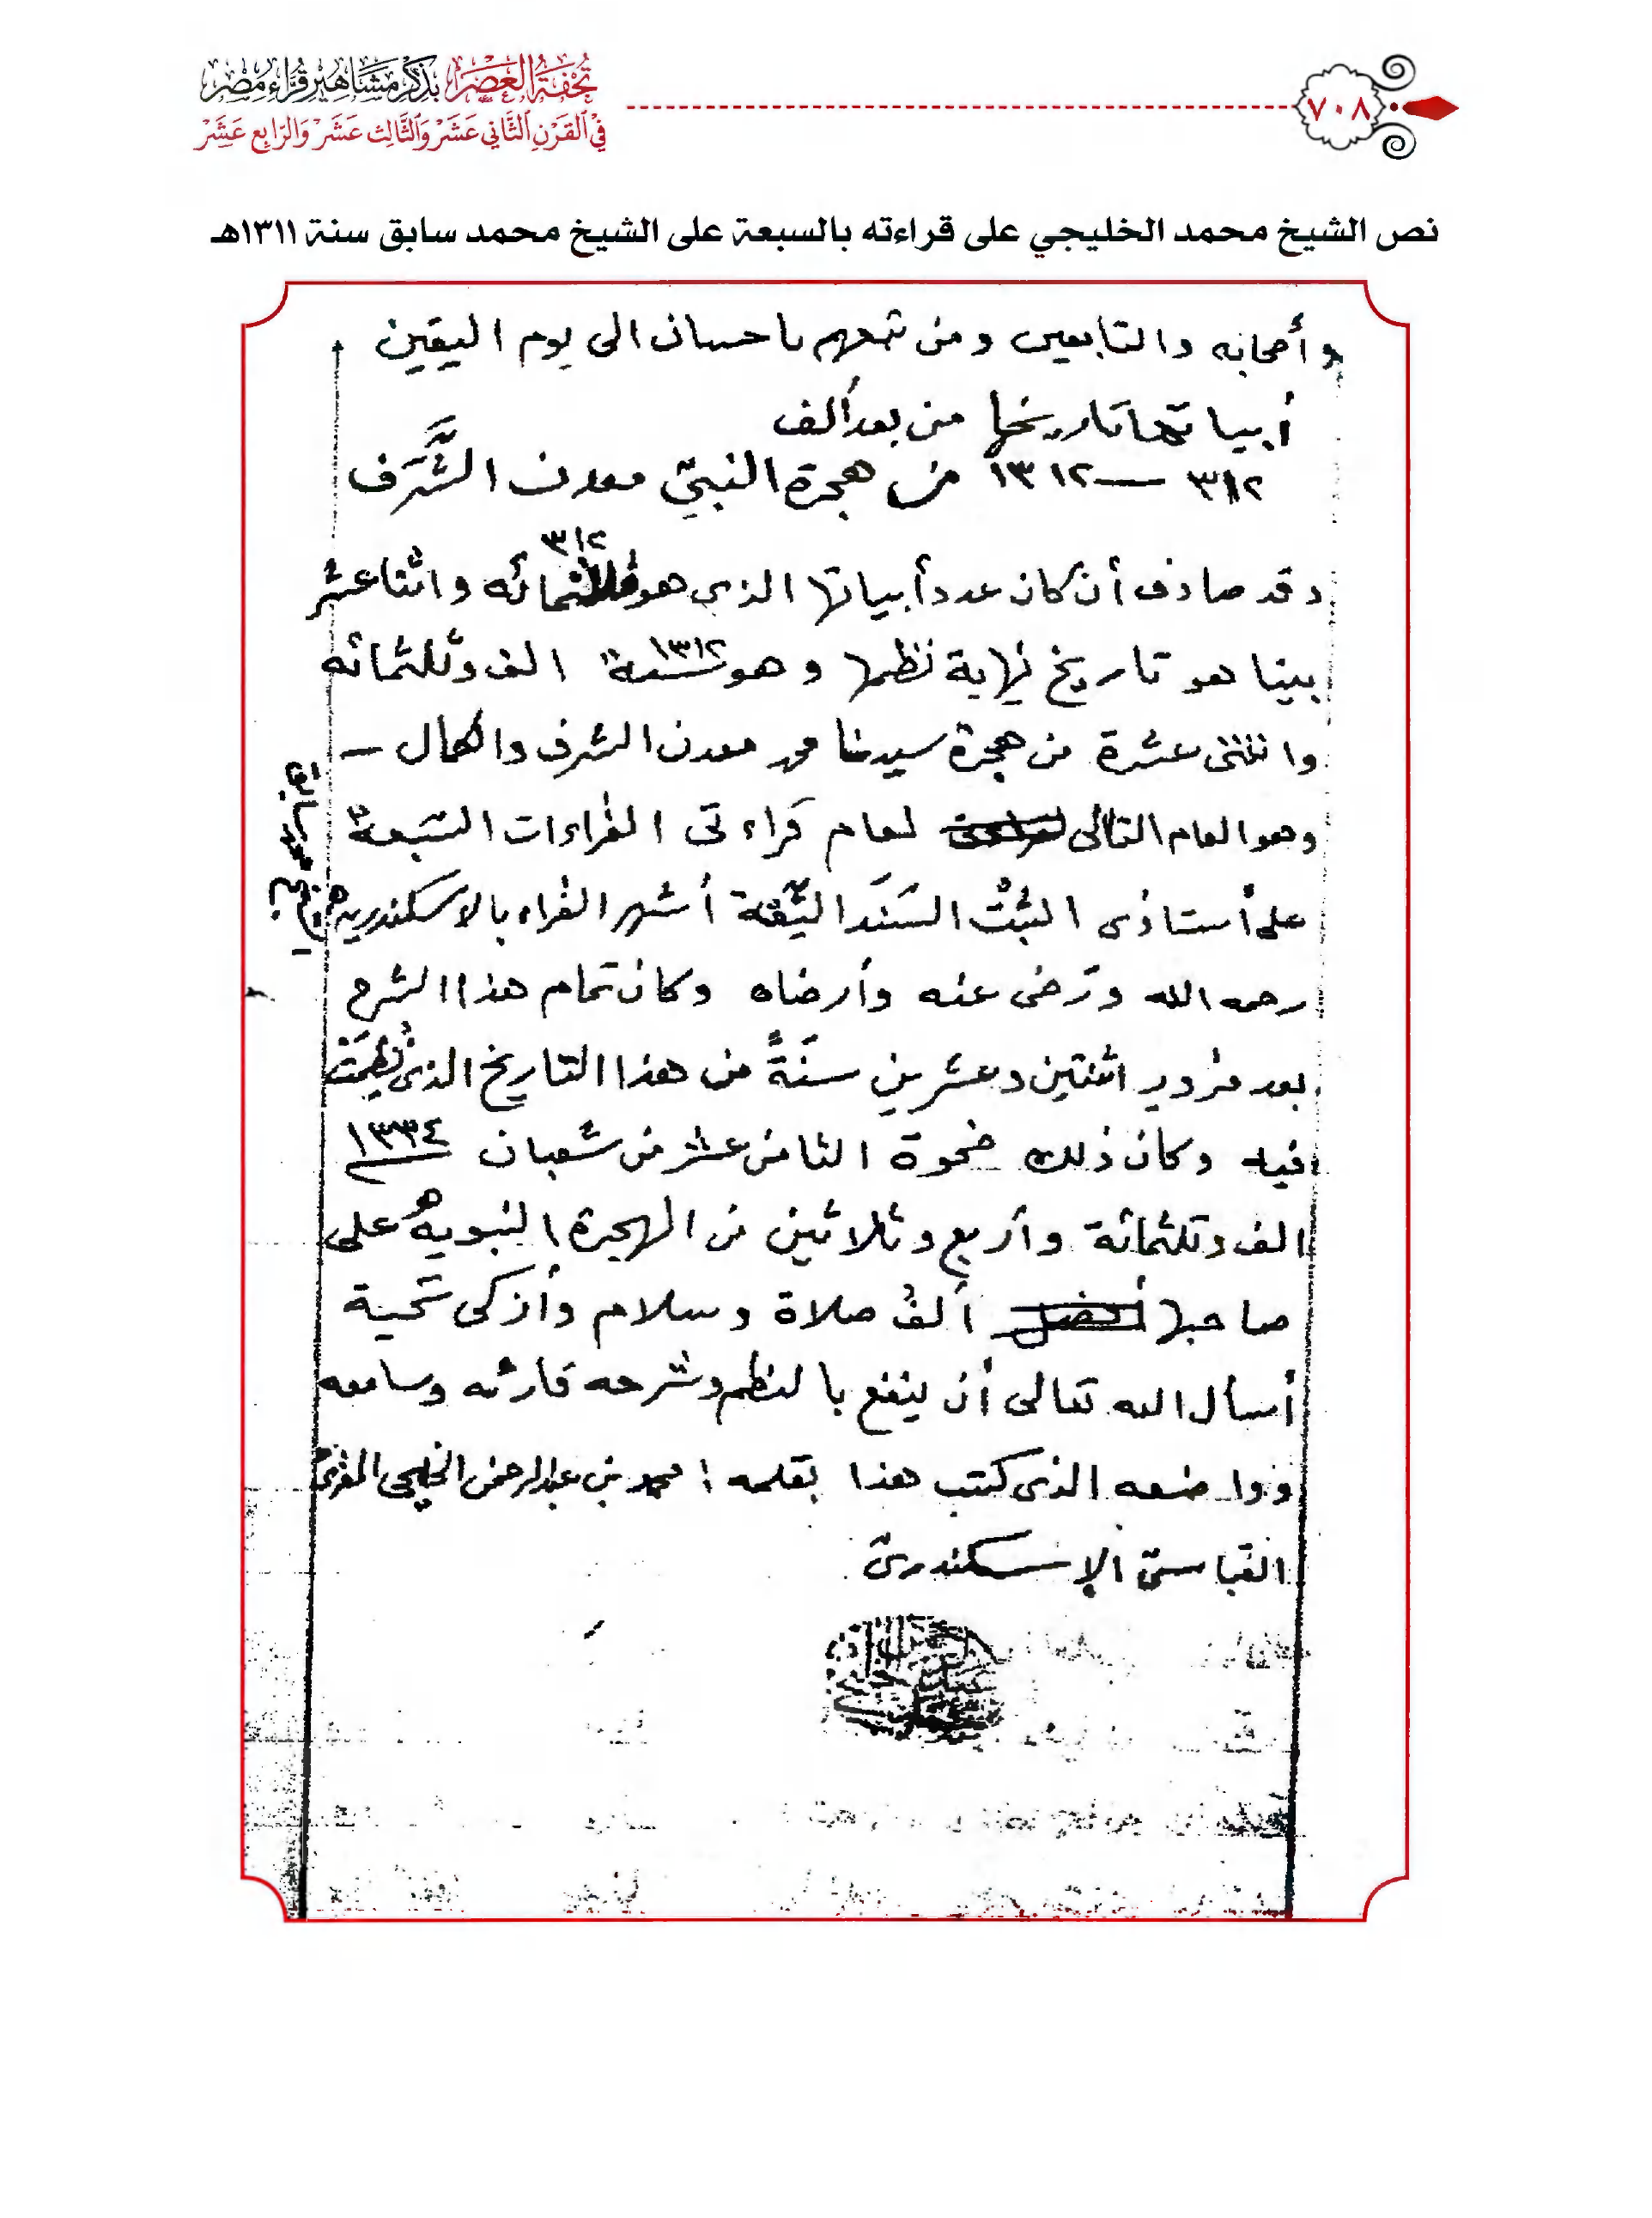 ٧٠٨
تحفة العصر بذكر مشاهير قراء مصر
في القرن الثاني عشر والثالث عشر والرابع عشر
نص الشيخ محمد الخليجي على قراءته بالسبعة على الشيخ محمد سابق سنة ١٣١١هـ
وأصحابه والتابعين ومن تبعهم باحسان الى يوم اليقين
أبياتها تاريخها من بعد ألف
٣١٢ — ١٣١٢ من هجرة النبيّ معدن الشَّرَف
٣١٢
وقد صادف أن كان عدد أبياتها الذى هو ثلاثمائه واثنا عشر
بيتا هو تاريخ نهاية نظمها وهو سنة ١٣١٢ الف وثلثمائه
واثنتى عشرة من هجرة سيدنا محمد معدن الشرف والكمال –
وهو العام التالى لعام قراءتى القراءات السَّبعة
على أستاذى الثبْت السَنَد الثِّقة أشهر القراء بالاسكندريه
الشيخ محمد سابق
رحمه الله ورَضى عنه وأرضاه وكان تمام هذا الشرح
بعد مرور اثنتين وعشرين سنَةً من هذا التاريخ الذى نُظِمَتْ
فيه وكان ذلك ضحوة الثامن عشر من شعبان ١٣٣٤
الف وثلثمائة وأربع وثلاثين من الهجرة النبويه على
صاحبها ألفُ صلاة وسلام وأزكى تحية
أسأل الله تعالى أن ينفع بالنظم وشرحه قارئه وسامعه
وواضعه الذى كتب هذا بقلمه : محمد بن عبد الرحمن الخليجى المقرئ
العباسىّ الإسكندرىّ